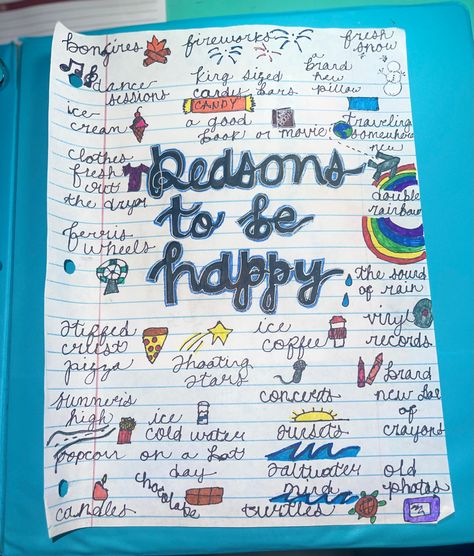 bonfires
fireworks
fresh
snow
dance
sessions
king sized
candy bars
CANDY
a
brand
new
pillow
ice
cream
a good
book or movie
traveling
somewhere
new
clothes
fresh
out
the dryer
Reasons
to be
happy
double
rainbow
ferris
wheels
the sound
of rain
stuffed
crust
pizza
shooting
stars
ice
coffee
vinyl
records
concerts
brand
new box
of
crayons
runner's
high
ice
cold water
on a hot
day
sunsets
popcorn
saltwater
old
photos
chocolate
candles
turtles